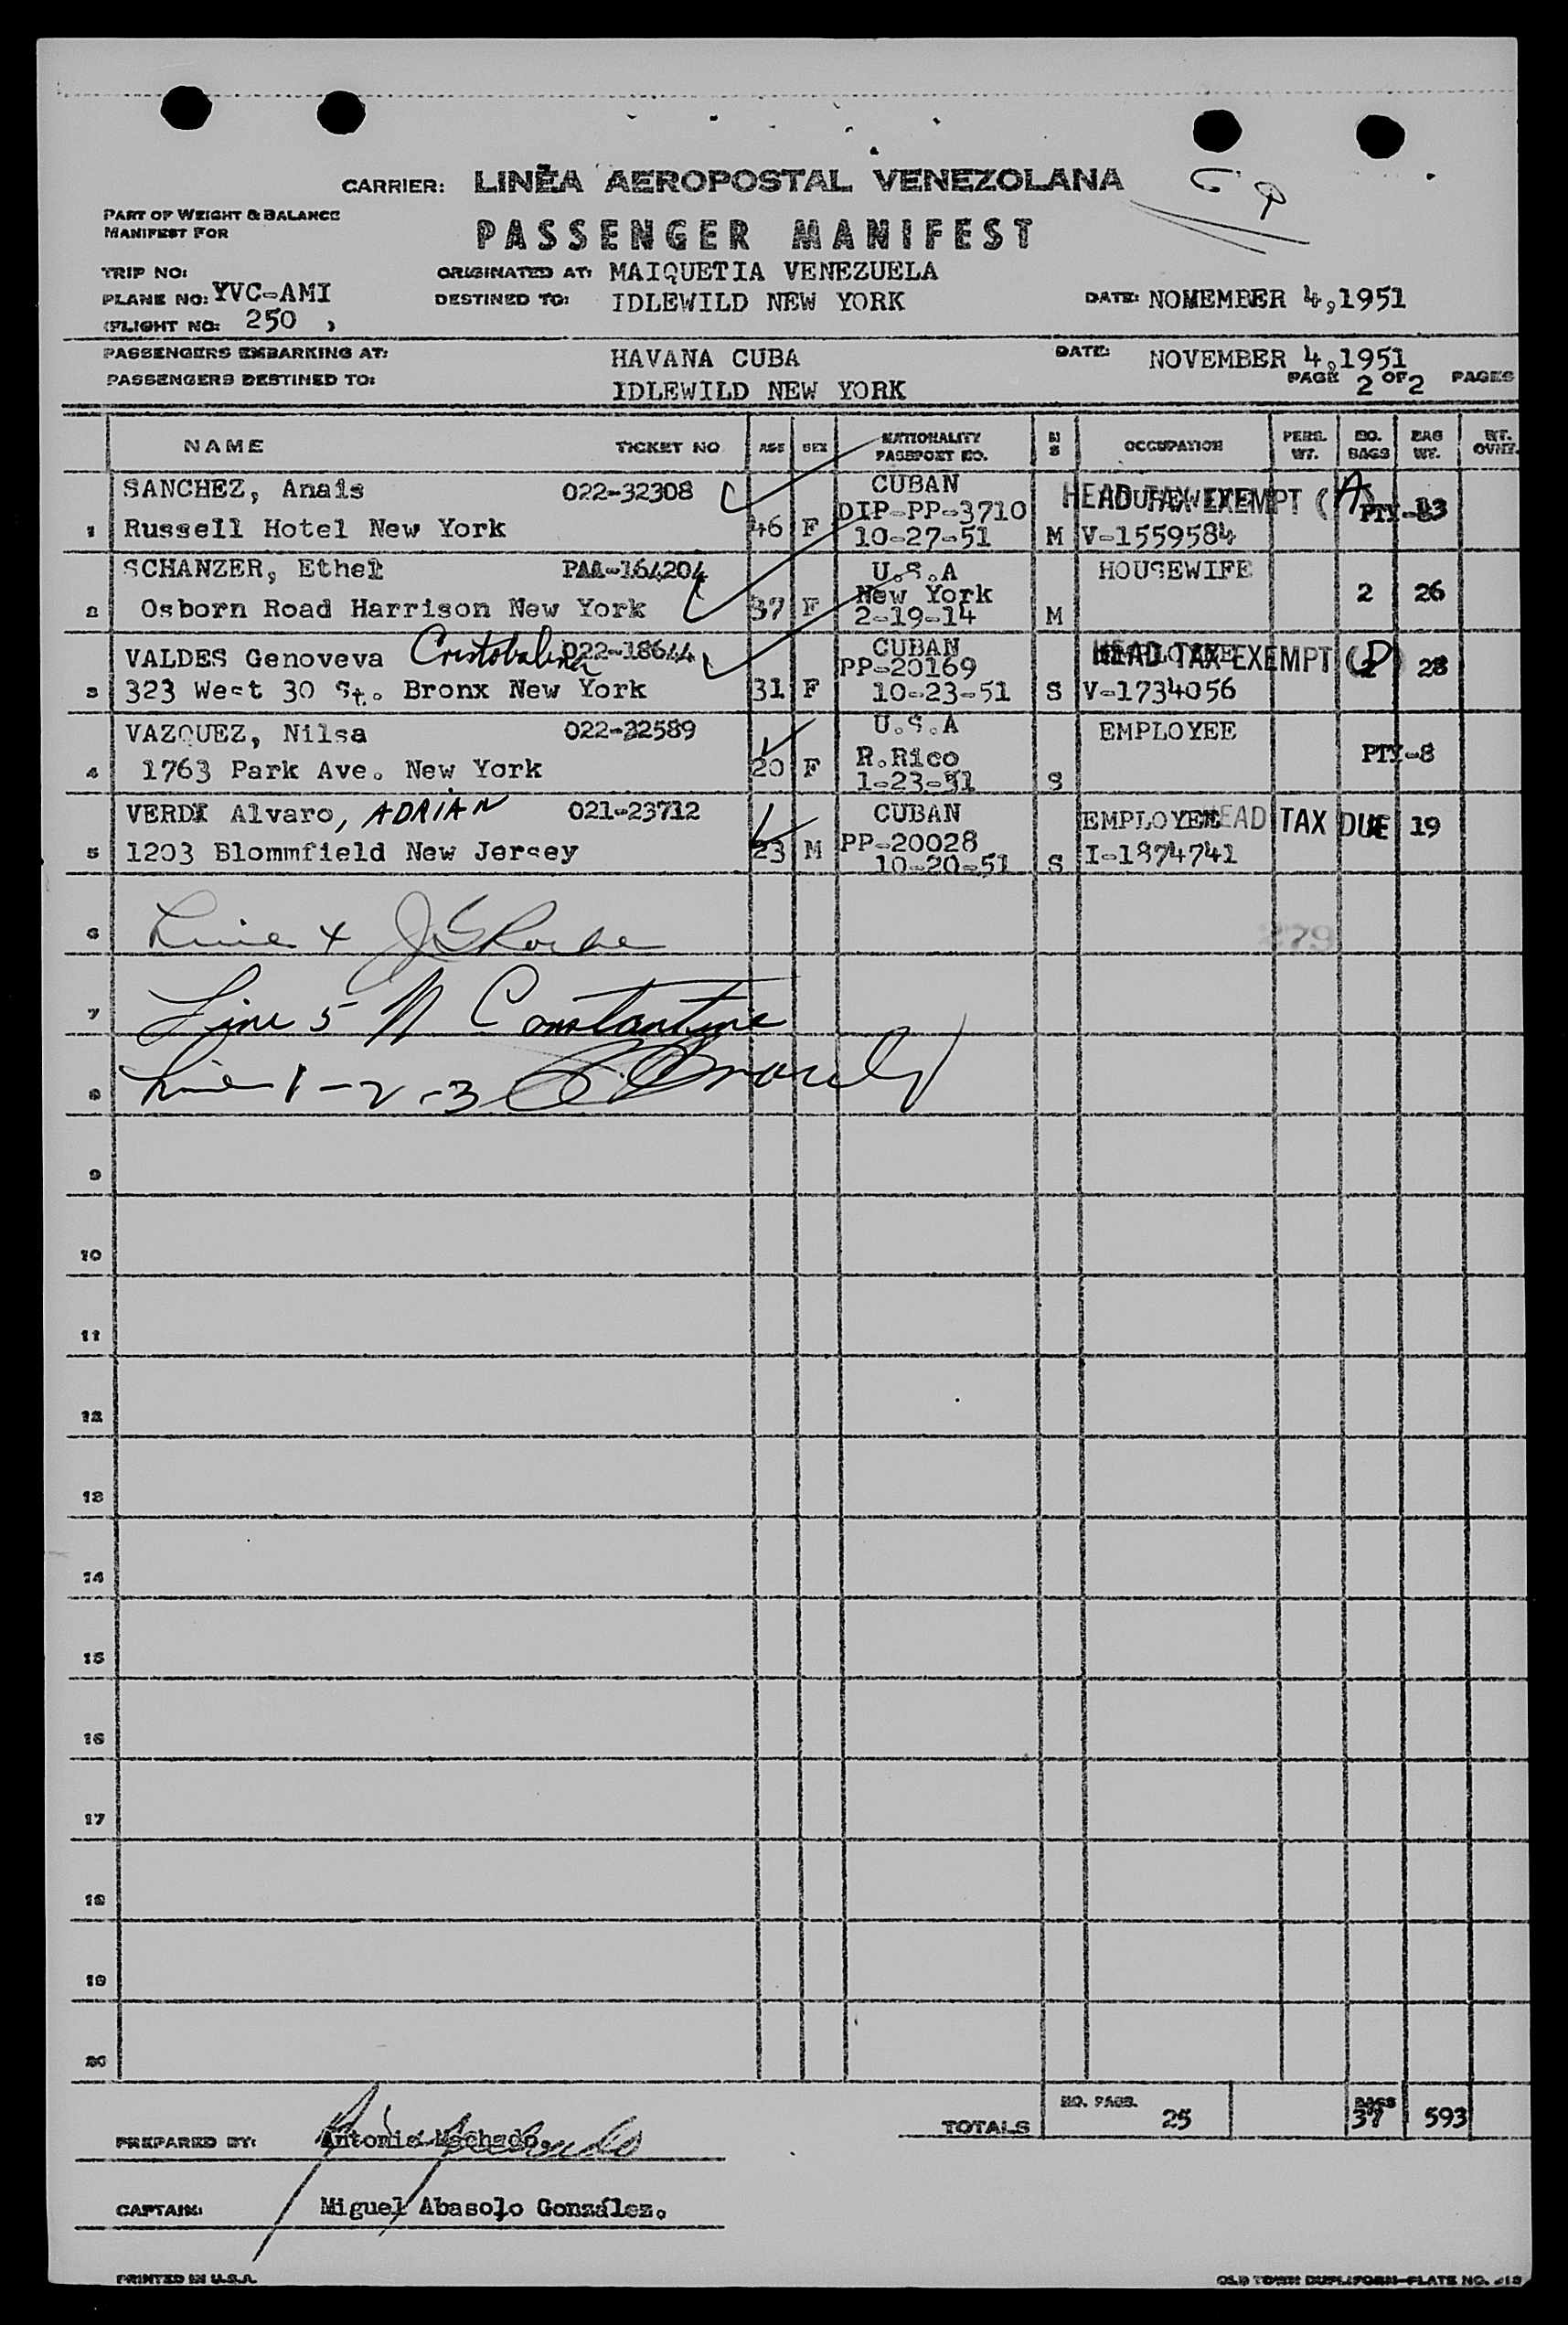 CARRIER: LINEA AEROPOSTAL VENEZOLANA
PART OF WEIGHT & BALANCE
MANIFEST FOR
PASSENGER MANIFEST
TRIP NO:
ORIGINATED AT: MAIQUETIA VENEZUELA
PLANE NO: YVC-AMI
DESTINED TO: IDLEWILD NEW YORK
DATE: NOMEMBER 4,1951
(FLIGHT NO: 250 )
PASSENGERS EMBARKING AT: HAVANA CUBA
DATE: NOVEMBER 4,1951
PASSENGERS DESTINED TO: IDLEWILD NEW YORK
PAGE 2 OF 2 PAGES
NAME TICKET NO AGE SEX NATIONALITY PASSPORT NO. M S OCCUPATION PERS. WT. NO. BAGS BAG WT. WT. OVWT.
SANCHEZ, Anais 022-32308 CUBAN HOUSEWIFE HEAD TAX EXEMPT (A)
DIP-PP-3710 PTY-
1 Russell Hotel New York 46 F 10-27-51 M V-1559584
SCHANZER, Ethel PAA-164204 U.S.A HOUSEWIFE
New York 2 26
2 Osborn Road Harrison New York 37 F 2-19-14 M
VALDES Genoveva Cristobalina 022-18644 CUBAN EMPLOYEE HEAD TAX EXEMPT (D)
PP-20169 2 28
3 323 West 30 St. Bronx New York 31 F 10-23-51 S V-1734056
VAZQUEZ, Nilsa 022-32589 U.S.A EMPLOYEE
P.Rico PTY-8
4 1763 Park Ave. New York 20 F 1-23-31 S
VERDI Alvaro, ADRIAN 021-23712 CUBAN EMPLOYEE HEAD TAX DUE 19
PP-20028
5 1203 Blommfield New Jersey 23 M 10-20-51 S I-1874741
6 Line 4
279
7 Line 5 N Constantine
8 Line 1-2-3
9
10
11
12
13
14
15
16
17
18
19
20
TOTALS NO. PASS. 25 BAGS 37 593
PREPARED BY: Antonio Machado.
CAPTAIN: Miguel Abasolo González.
PRINTED IN U.S.A.
OLD TOWN DUPLIFORM-PLATE NO.